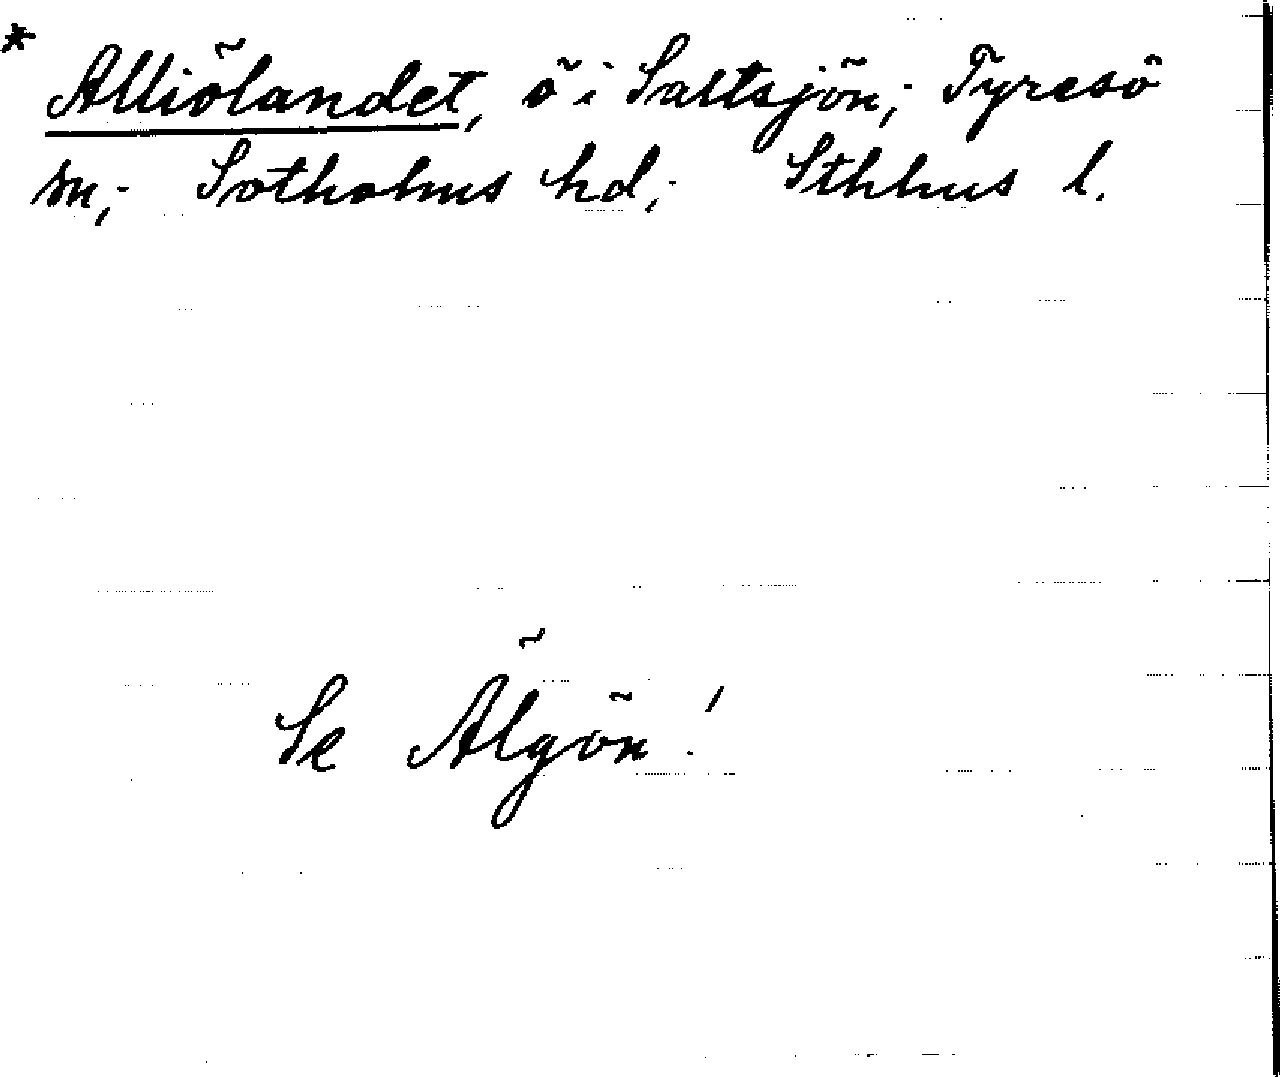 * Alliölandet, ö i Saltsjön; Tyresö
sn; Sotholms hd; Sthlms l.
Se Älgön!